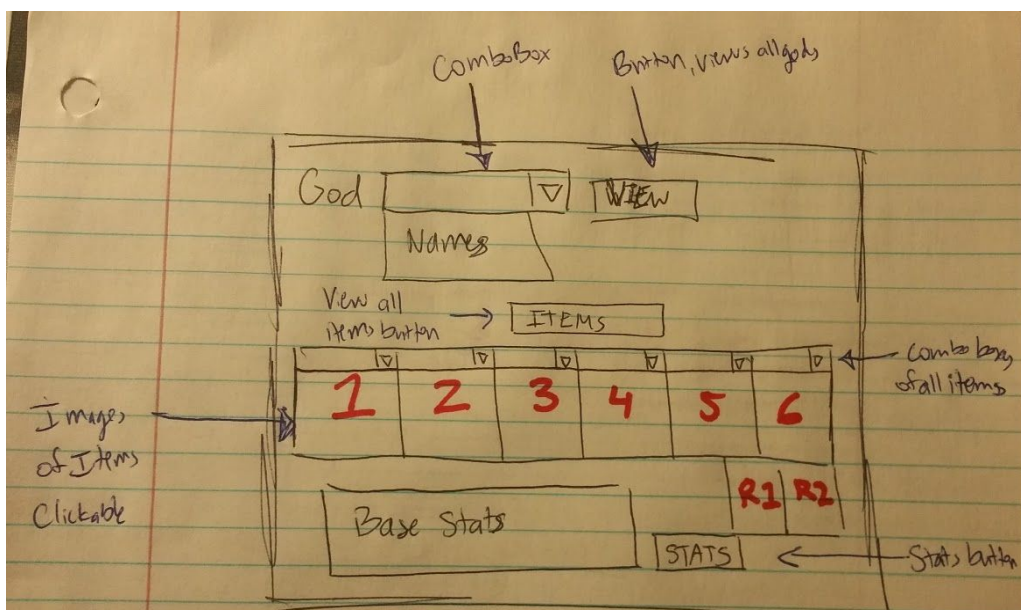 ComboBox
Button, views all gods
God
VIEW
Names
View all
items button
ITEMS
combo boxes
of all items
1 2 3 4 5 6
Images
of Items
Clickable
R1 R2
Base Stats
STATS
Stats button